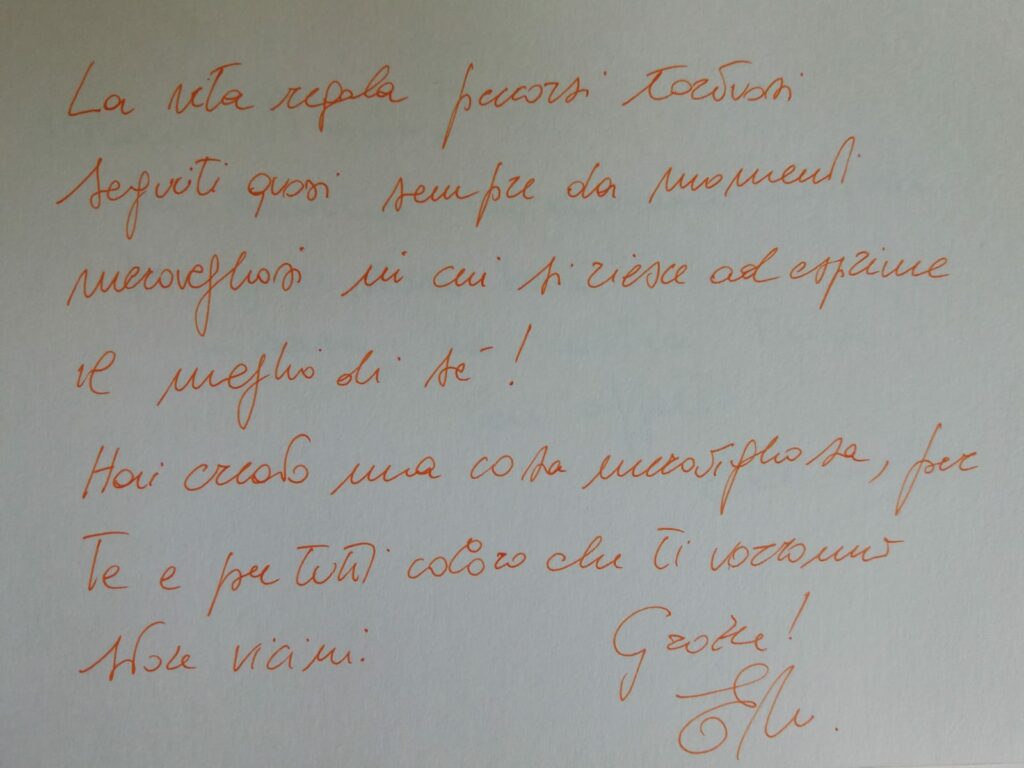 La vita regala percorsi tortuosi
seguiti quasi sempre da momenti
meravigliosi in cui si riesce ad esprime
il meglio di sé!
Hai creato una cosa meravigliosa, per
Te e per tutti coloro che ti vorranno
stare vicini.
Grazie!